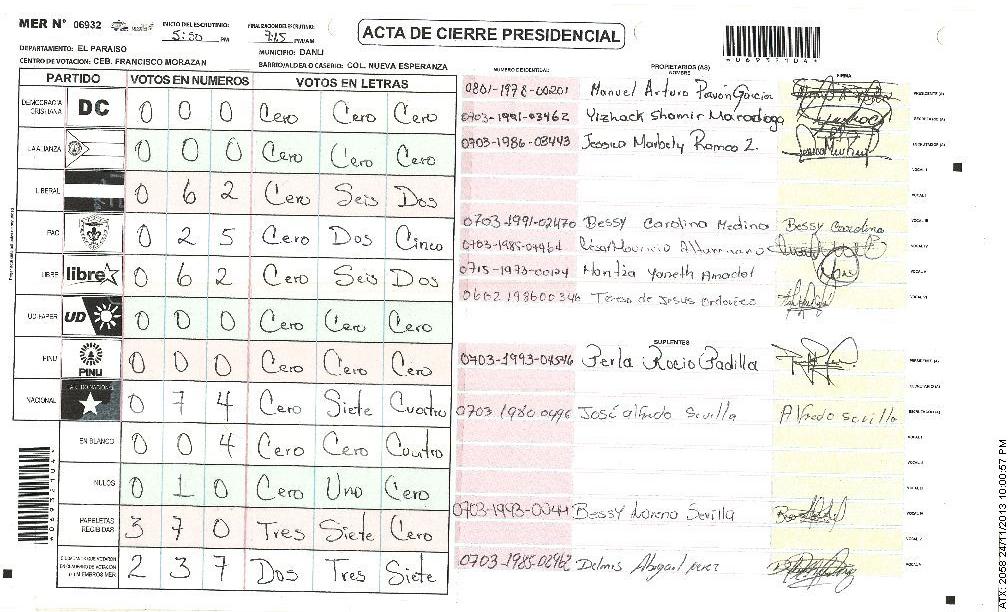 MER N° 06932
INICIO DEL ESCRUTINIO:
5:50 PM
FINALIZACION DEL ESCRUTINIO:
7:15 PM/AM
ACTA DE CIERRE PRESIDENCIAL
*06932104*
DEPARTAMENTO: EL PARAISO
MUNICIPIO: DANLI
CENTRO DE VOTACION: CEB. FRANCISCO MORAZAN
BARRIO/ALDEA O CASERIO: COL. NUEVA ESPERANZA
PARTIDO VOTOS EN NUMEROS VOTOS EN LETRAS
DEMOCRACIA CRISTIANA DC 0 0 0 Cero Cero Cero
LA ALIANZA 0 0 0 Cero Cero Cero
LIBERAL 0 6 2 Cero Seis Dos
PAC 0 2 5 Cero Dos Cinco
LIBRE libre 0 6 2 Cero Seis Dos
UD-FAPER UD 0 0 0 Cero Cero Cero
PINU PINU 0 0 0 Cero Cero Cero
NACIONAL 0 7 4 Cero Siete Cuatro
EN BLANCO 0 0 4 Cero Cero Cuatro
NULOS 0 1 0 Cero Uno Cero
PAPELETAS RECIBIDAS 3 7 0 Tres Siete Cero
2 3 7 Dos Tres Siete
NUMERO IDENTIDAD PROPIETARIOS (AS) NOMBRE FIRMA
0801-1978-00201 Manuel Arturo Pavón García PRESIDENTE (A)
0703-1991-03462 Yizhack Shamir Maradiaga SECRETARIO (A)
0703-1986-03443 Jessica Marbely Ramos Z. ESCRUTADOR (A)
VOCAL I
VOCAL II
0703-1991-02470 Bessy Carolina Medina Bessy Carolina VOCAL III
0703-1985-04464 VOCAL IV
Yaneth Amador VOCAL V
Teresa de Jesus Ordoñez VOCAL VI
SUPLENTES
0703-1993-04546 Perla Rocio Padilla PRESIDENTE (A)
SECRETARIO (A)
0703 1980 José alfredo Sevilla Alfredo Sevilla ESCRUTADOR (A)
VOCAL I
VOCAL II
Bessy Lorena Sevilla VOCAL III
0703-1985-02962 Delmis Abigail perez VOCAL V
*06932104*
ATX: 2058 24/11/2013 10:00:57 PM